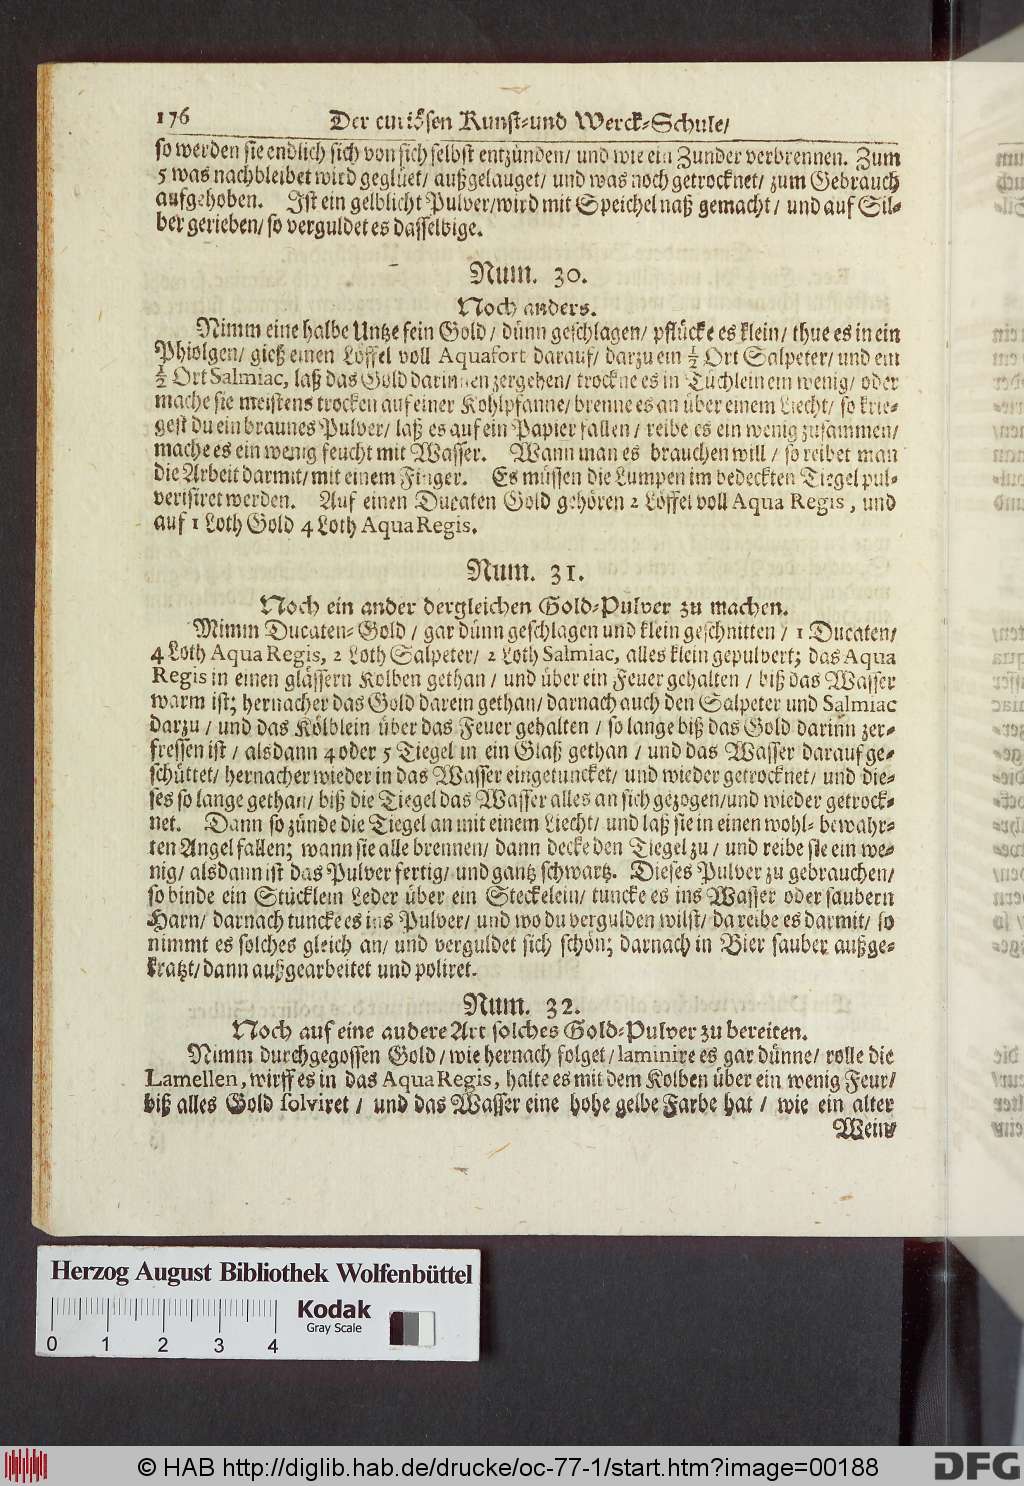 176 Der curiösen Kunst-und Werck-Schule/
so werden sie endlich sich von sich selbst entzünden/ und wie ein Zunder verbrennen. Zum
5 was nachbleibet wird geglüet/ außgelauget/ und was noch getrocknet/ zum Gebrauch
aufgehoben. Ist ein gelblicht Pulver/wird mit Speichel naß gemacht/ und auf Sil-
ber gerieben/ so verguldet es dasselbige.
Num. 30.
Noch anders.
Nimm eine halbe Untze fein Gold/ dünn geschlagen/ pflücke es klein/ thue es in ein
Phiolgen/ gieß einen Löffel voll Aquafort darauf/ darzu ein ½ Ort Salpeter/ und ein
½ Ort Salmiac, laß das Gold darinnen zergehen/ trockne es in Tüchlein ein wenig/ oder
mache sie meistens trocken auf einer Kohlpfanne/ brenne es an über einem Liecht/ so krie-
gest du ein braunes Pulver/ laß es auf ein Papier fallen/ reibe es ein wenig zusammen/
mache es ein wenig feucht mit Wasser. Wann man es brauchen will/ so reibet man
die Arbeit darmit/ mit einem Finger. Es müssen die Lumpen im bedeckten Tiegel pul-
verisiret werden. Auf einen Ducaten Gold gehören 2 Löffel voll Aqua Regis, und
auf 1 Loth Gold 4 Loth Aqua Regis.
Num. 31.
Noch ein ander dergleichen Gold-Pulver zu machen.
Nimm Ducaten-Gold/ gar dünn geschlagen und klein geschnitten/ 1 Ducaten/
4 Loth Aqua Regis, 2 Loth Salpeter/ 2 Loth Salmiac, alles klein gepulvert; das Aqua
Regis in einen glässern Kolben gethan/ und über ein Feuer gehalten/ biß das Wasser
warm ist; hernacher das Gold darein gethan/ darnach auch den Salpeter und Salmiac
darzu/ und das Kölblein über das Feuer gehalten/ so lange biß das Gold darinn zer-
fressen ist/ alsdann 4 oder 5 Tiegel in ein Glaß gethan/ und das Wasser darauf ge-
schüttet/ hernacher wieder in das Wasser eingetuncket/ und wieder getrocknet/ und die-
ses so lange gethan/ biß die Tiegel das Wasser alles an sich gezogen/und wieder getrock-
net. Dann so zünde die Tiegel an mit einem Liecht/ und laß sie in einen wohl-bewahr-
ten Angel fallen; wann sie alle brennen/ dann decke den Tiegel zu/ und reibe sie ein we-
nig/ alsdann ist das Pulver fertig/ und gantz schwartz. Dieses Pulver zu gebrauchen/
so binde ein Stücklein Leder über ein Steckelein/ tuncke es ins Wasser oder saubern
Harn/ darnach tuncke es ins Pulver/ und wo du vergulden wilst/ da reibe es darmit/ so
nimmt es solches gleich an/ und verguldet sich schön; darnach in Bier sauber außge-
kratzt/ dann außgearbeitet und poliret.
Num. 32.
Noch auf eine andere Art solches Gold-Pulver zu bereiten.
Nimm durchgegossen Gold/ wie hernach folget/ laminire es gar dünne/ rolle die
Lamellen, wirff es in das Aqua Regis, halte es mit dem Kolben über ein wenig Feur/
biß alles Gold solviret/ und das Wasser eine hohe gelbe Farbe hat/ wie ein alter
Wein
Herzog August Bibliothek Wolfenbüttel
Kodak
Gray Scale
0 1 2 3 4
© HAB http://diglib.hab.de/drucke/oc-77-1/start.htm?image=00188
DFG